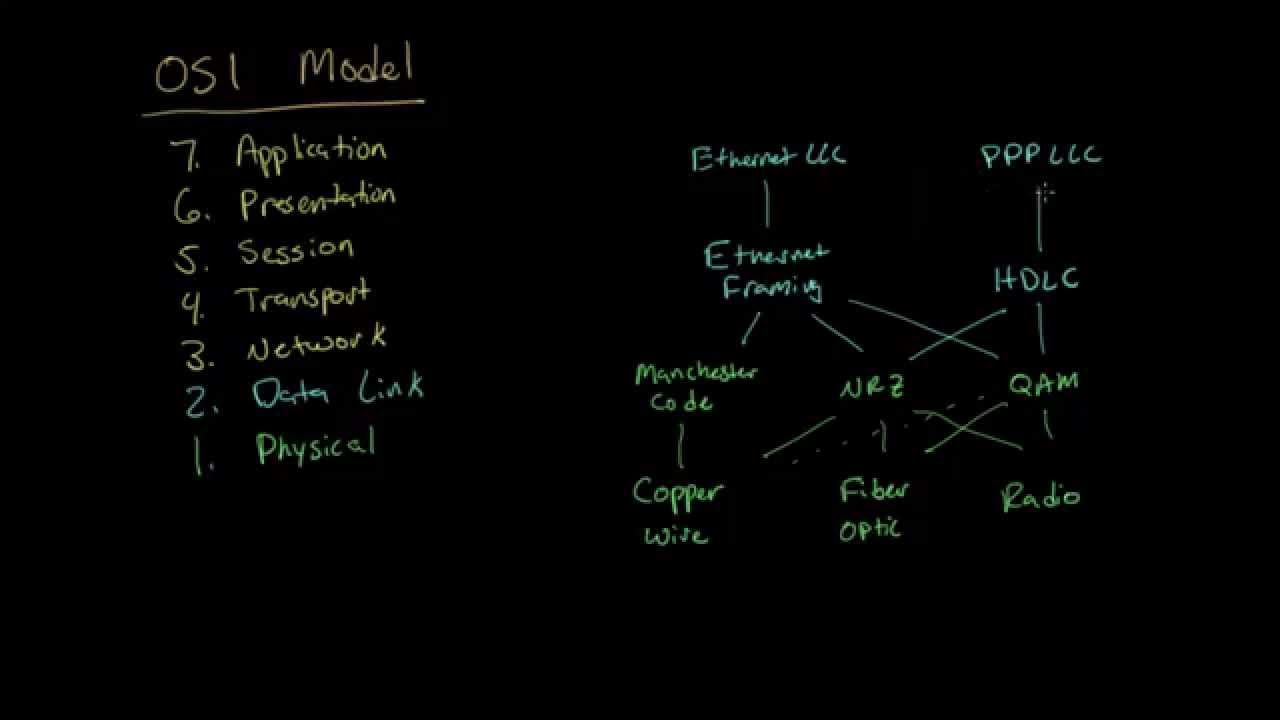 OSI Model
7. Application
6. Presentation
5. Session
4. Transport
3. Network
2. Data Link
1. Physical
Ethernet LLC
PPP LLC
Ethernet
Framing
HDLC
Manchester
Code
NRZ
QAM
Copper
Wire
Fiber
Optic
Radio